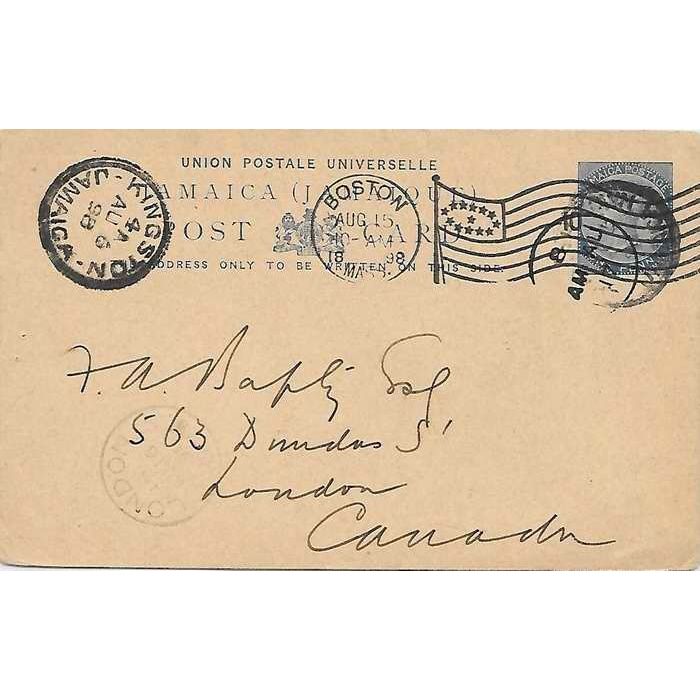 UNION POSTALE UNIVERSELLE
JAMAICA (JAMAIQUE)
POST CARD
ADDRESS ONLY TO BE WRITTEN ON THIS SIDE.
KINGSTON · JAMAICA ·
4 A
AU 5
98
BOSTON
AUG 15
10-AM
18 98
MASS.
JAMAICA POSTAGE
AM
F. A. Esq
563 Dundas St
London
Canada
LONDON